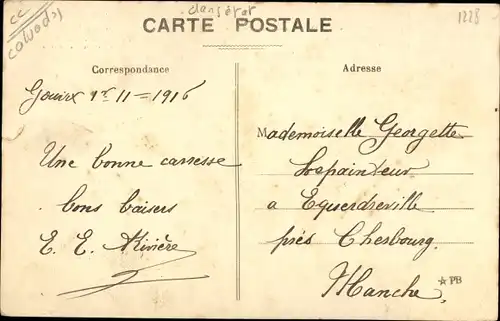 CC
Calvados
dans état
1228
CARTE POSTALE
Correspondance
Adresse
Gouvix 1er 11 = 1916
Une bonne carresse
bons baisers
E. E. Rivière
Mademoiselle Georgette
Lepainteur
a Equerdreville
près Cherbourg.
Manche.
☆ PB